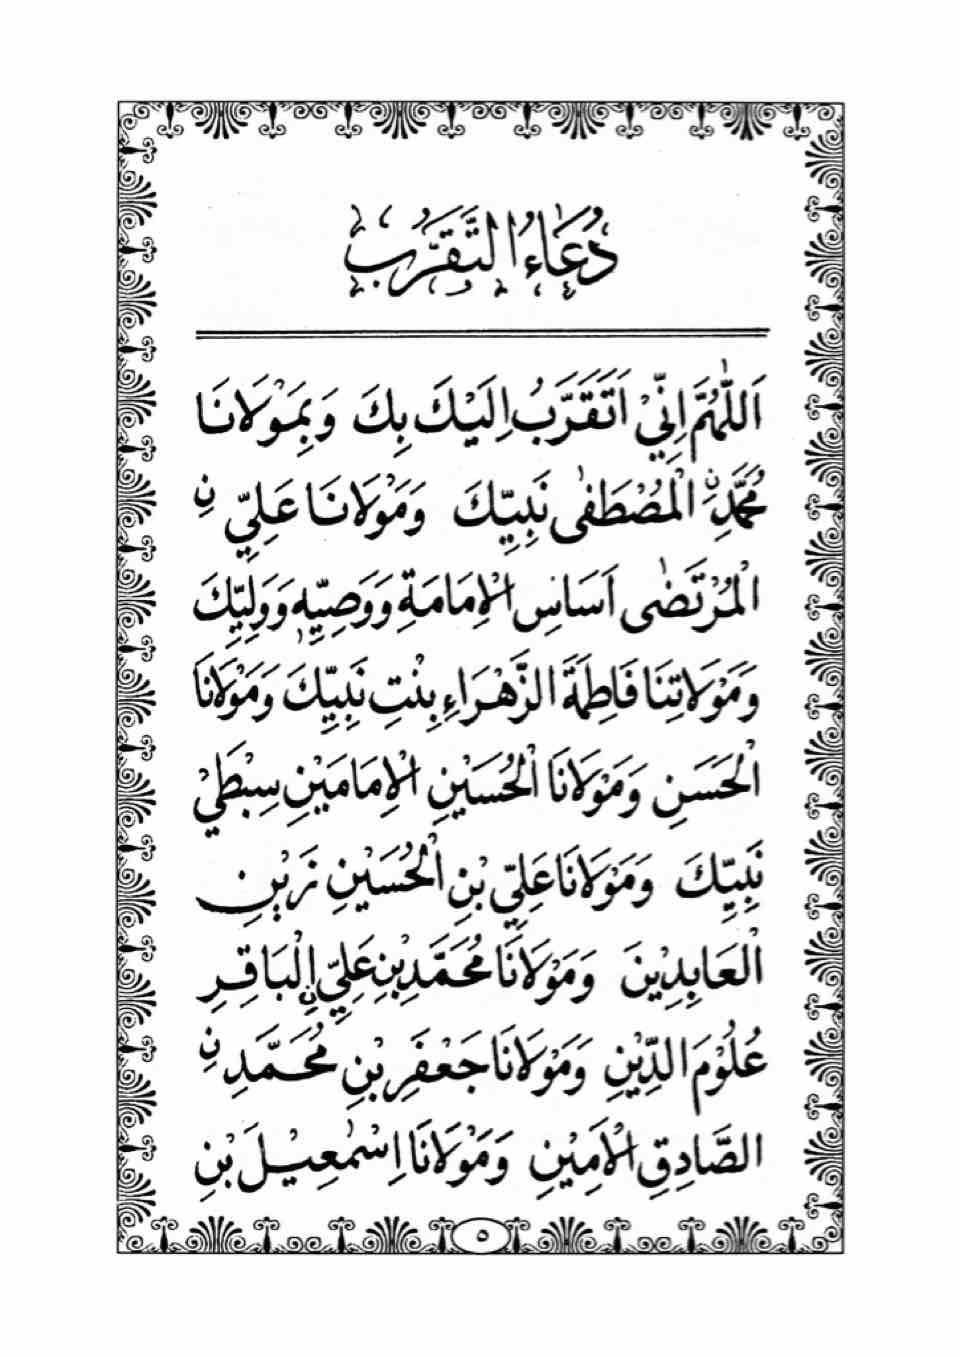 دُعَاءُ التَّقَرُّبِ
اَللّٰهُمَّ اِنِّيْ اَتَقَرَّبُ اِلَيْكَ بِكَ وَبِمَوْلَانَا
مُحَمَّدِ نِ الْمُصْطَفٰى نَبِيِّكَ وَمَوْلَانَا عَلِيِّ نِ
الْمُرْتَضٰى اَسَاسِ الْاِمَامَةِ وَوَصِيِّهٖ وَوَلِيِّكَ
وَمَوْلَاتِنَا فَاطِمَةَ الزَّهْرَاءِ بِنْتِ نَبِيِّكَ وَمَوْلَانَا
الْحَسَنِ وَمَوْلَانَا الْحُسَيْنِ الْاِمَامَيْنِ سِبْطَيْ
نَبِيِّكَ وَمَوْلَانَا عَلِيِّ بْنِ الْحُسَيْنِ زَيْنِ
الْعَابِدِيْنَ وَمَوْلَانَا مُحَمَّدِ بْنِ عَلِيِّ نِ الْبَاقِرِ
عُلُوْمَ الدِّيْنِ وَمَوْلَانَا جَعْفَرِ بْنِ مُحَمَّدِ نِ
الصَّادِقِ الْاَمِيْنِ وَمَوْلَانَا اِسْمٰعِيْلَ بْنِ
٥